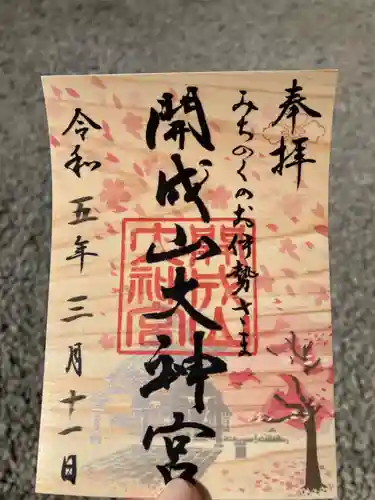 奉拝
みちのくのお伊勢さま
開成山大神宮
令和五年三月十一日
開成山
大神宮